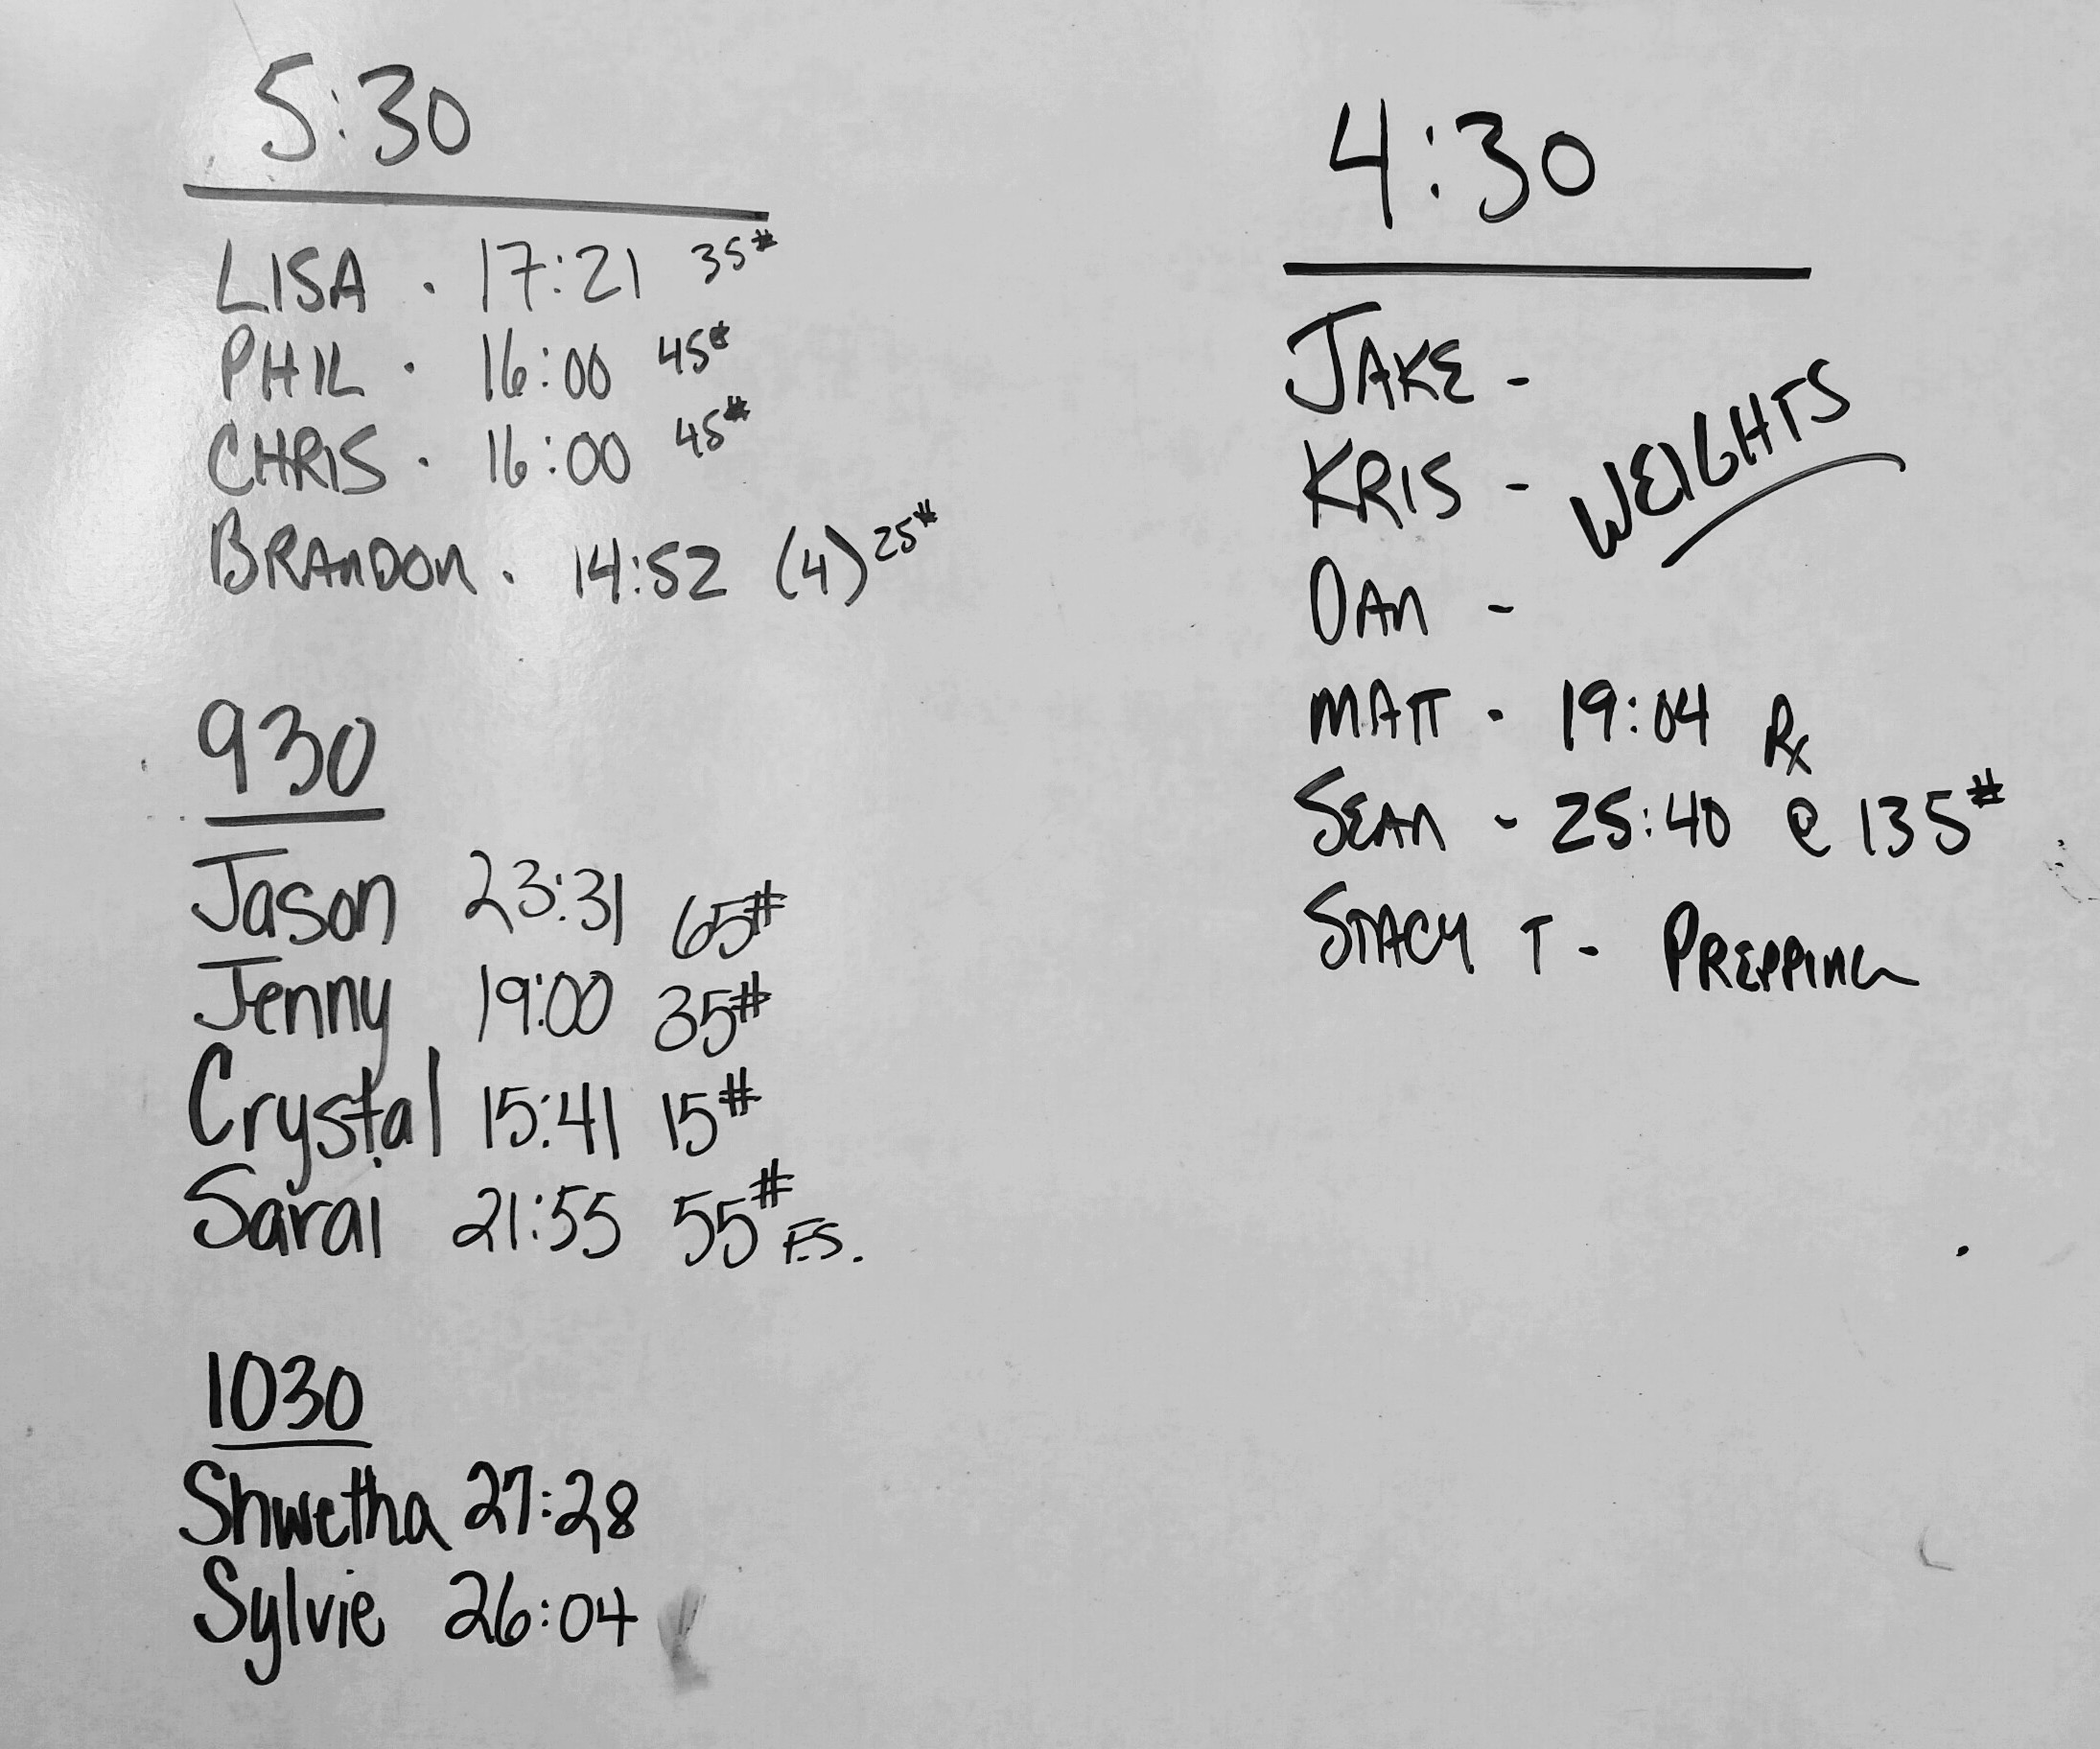 5:30
LISA . 17:21 35#
PHIL . 16:00 45#
CHRIS . 16:00 45#
BRANDON . 14:52 (4) 25#
930
Jason 23:31 65#
Jenny 19:00 35#
Crystal 15:41 15#
Sarai 21:55 55# F.S.
1030
Shwetha 27:28
Sylvie 26:04
4:30
JAKE -
KRIS - WEIGHTS
DAN -
MATT - 19:04 Rx
SEAN - 25:40 @ 135#
STACY T - PREPPING